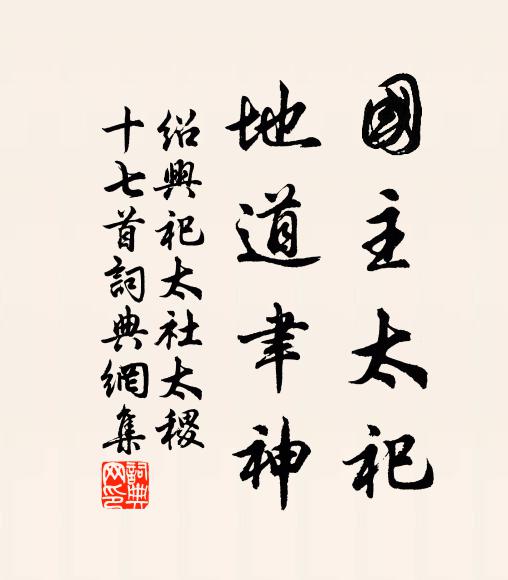 國主太祀
地道聿神
紹興祀太社太稷
十七首詞典網集
詞典
网印